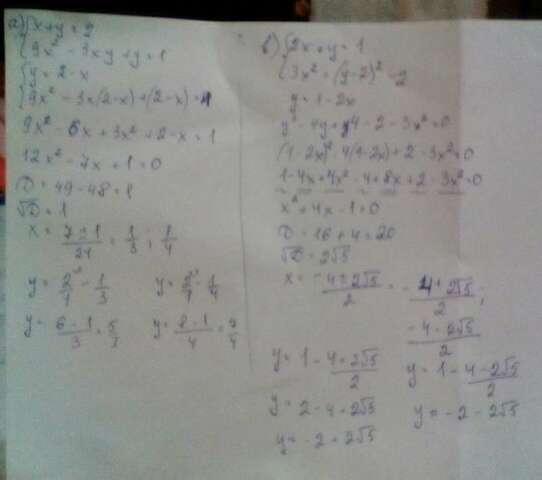 а) {x+y=2
{9x² - 3xy + y = 1
{y = 2-x
{9x² - 3x(2-x) + (2-x) = 1
9x² - 6x + 3x² + 2 - x = 1
12x² - 7x + 1 = 0
D = 49 - 48 = 1
√D = 1
x = (7±1)/24 = 1/3 ; 1/4
y = 2/1 - 1/3   y = 2/1 - 1/4
y = (6-1)/3 = 5/3   y = (8-1)/4 = 7/4
в) {2x+y=1
{3x² = (y-2)² - 2
y = 1-2x
y² - 4y + 4 - 2 - 3x² = 0
(1-2x)² - 4(1-2x) + 2 - 3x² = 0
1-4x+4x² - 4+8x+2 - 3x² = 0
x² + 4x - 1 = 0
D = 16 + 4 = 20
√D = 2√5
x = (-4±2√5)/2 = (-4+2√5)/2 ;
(-4-2√5)/2
y = 1 - (4+2√5)/2   y = 1 - (4-2√5)/2
y = 2-4+2√5   y = -2-2√5
y = -2+2√5